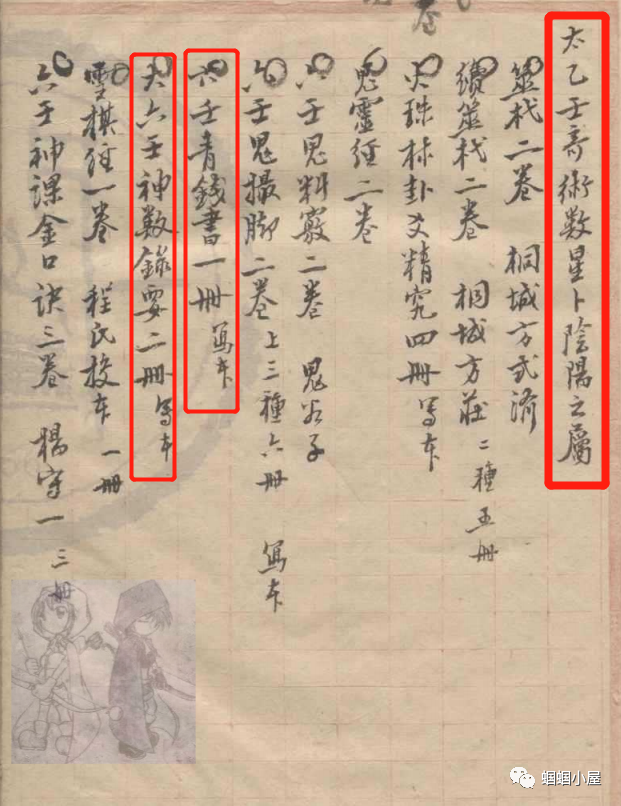 太乙壬奇術数星卜陰陽之屬
筮杙二卷 桐城方式濟
續筮杙二卷 桐城方莊 二種五冊
火珠林卦爻精究四冊 写本
鬼靈經二卷
六壬鬼料竅二卷 鬼谷子
六壬鬼撮脚二卷 上三種六冊 寫本
六壬青錢書一冊 寫本
大六壬神数錄要二冊 写本
靈棋經一卷 程氏校本 一冊
六壬神課金口訣三卷 楊守一 三冊
蝈蝈小屋